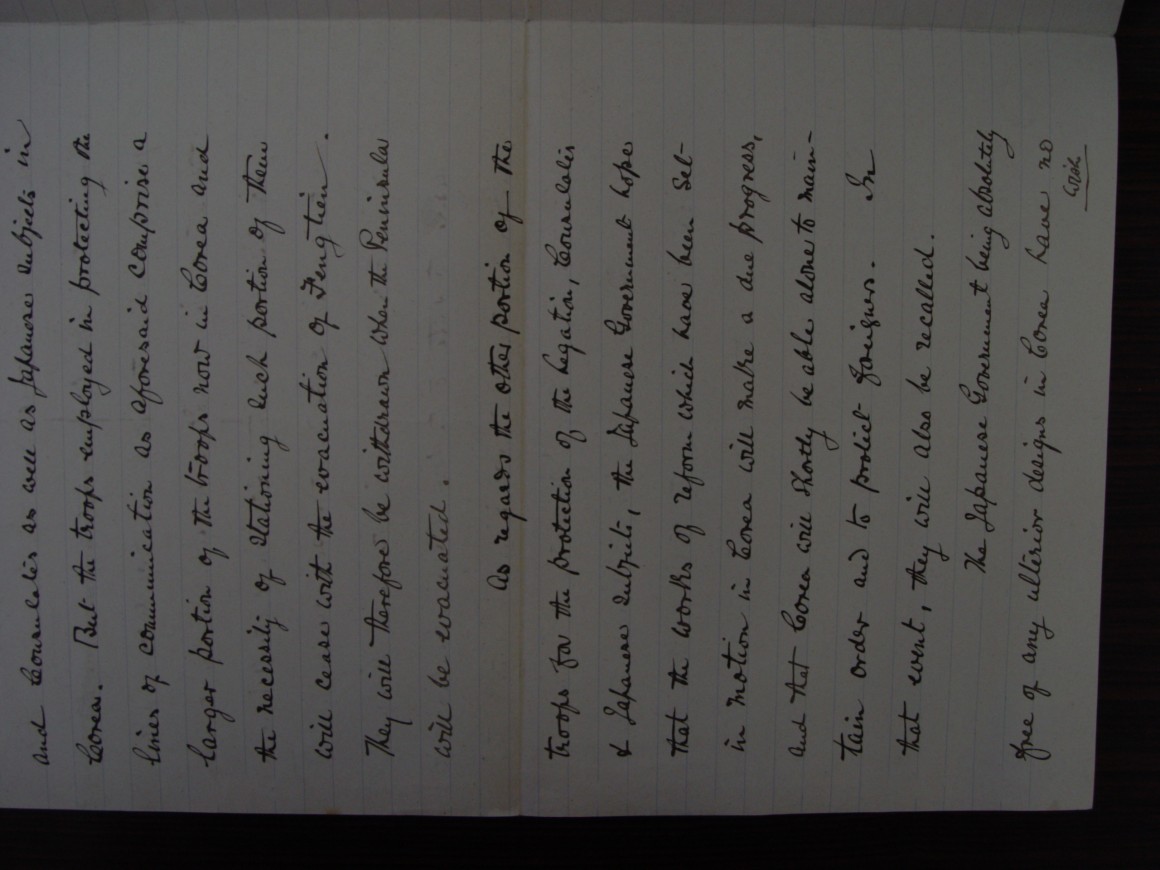 and Consulates as well as Japanese subjects in
Corea. But the troops employed in protecting the
lines of communication as aforesaid comprise a
larger portion of the troops now in Corea and
the necessity of stationing such portion of them
will cease with the evacuation of Fengtien.
They will therefore be withdrawn when the Peninsula
will be evacuated.
As regards the other portion of the
troops for the protection of the Legation, Consulates
& Japanese subjects, the Japanese Government hope
that the works of reform which have been set-
in motion in Corea will make a due progress,
and that Corea will shortly be able alone to main-
tain order and to protect foreigners. In
that event, they will also be recalled.
The Japanese Government being absolutely
free of any ulterior designs in Corea have no
wish